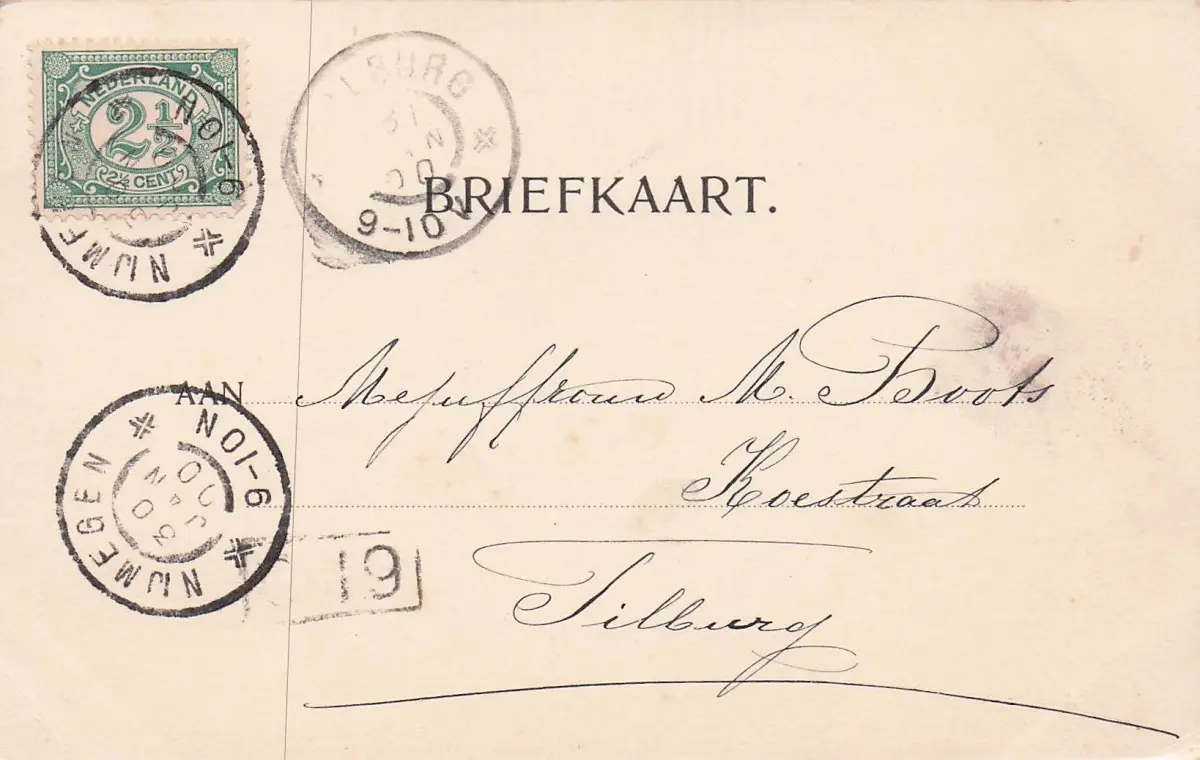 NEDERLAND
2½
2½ CENT
NIJMEGEN 9-10N
LBURG
31
00
9-10V
BRIEFKAART.
AAN Mejuffrouw M. Boots
Koestraat
Tilburg
NIJMEGEN 9-10N
30 JAN 00
19